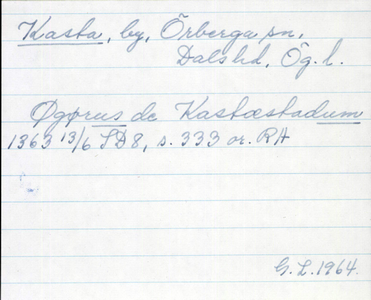 Kasta, by, Örberga sn,
Dals hd, Ög. l.
Øgprus de Kastæstadum
1363 13/6 SD8, s. 333 or. RA
G. L. 1964.